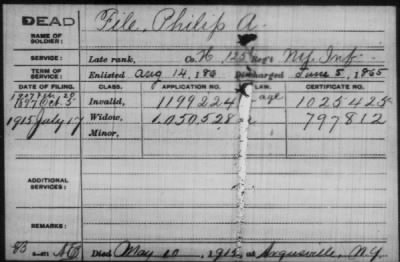 DEAD
File, Philip A.
NAME OF SOLDIER:
SERVICE: Late rank, Co. H 125 Reg't Ny. Inf
TERM OF SERVICE: Enlisted Aug 14, 186 Discharged June 5, 1865
DATE OF FILING. CLASS. APPLICATION NO. LAW. CERTIFICATE NO.
1897 Oct. 5 Invalid, 1199224 age 1025425
1915 July 17 Widow, 1.050.528 797812
Minor,
ADDITIONAL SERVICES:
REMARKS:
Died May 10, 1915, at Argusville, N.Y.